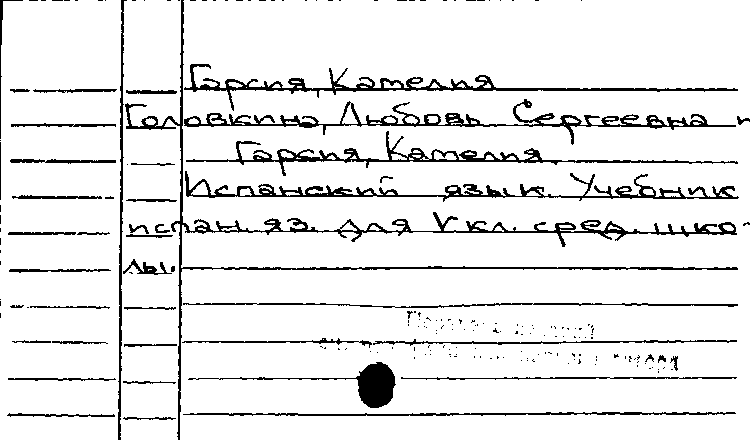 Гарсия, Камелия
Головкина, Любовь Сергеевна и
Гарсия, Камелия.
Испанский язык. Учебник
испан. яз. для V кл. сред. шко-
лы.